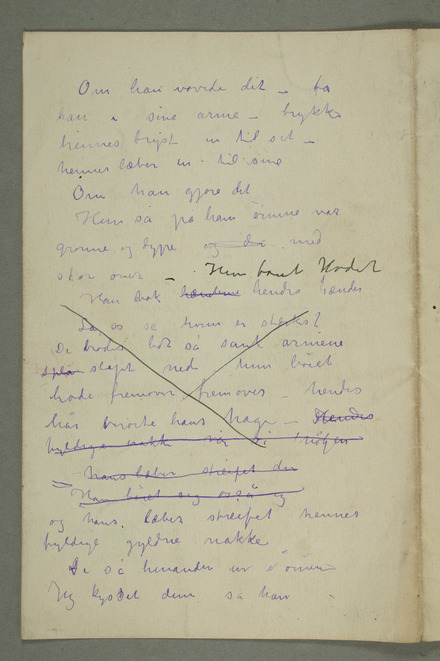 Om han vovede det – ta
han i sine arme – trykke
hennes bryst in til sit –
hennes læber in til sine
Om han gjøre det
Hun så på ham öinene var
grønne og dype og de med
skær over – Hun bøiet Hodet
Han tok hændene hendes hænder
La os se hvem er sterkest
De brødes lidt så sank armene
slapt ned hun bøiet
hode fremover fremover – hendes
hår berørte hans hage – Hendes
fyldige nakke var så
hans læber streifet den
– Han bøiet sig også og
og hans læber streifet hennes
fyldige gyldne nakke
De så henanden in i öinene
Jeg kysset dem sa han